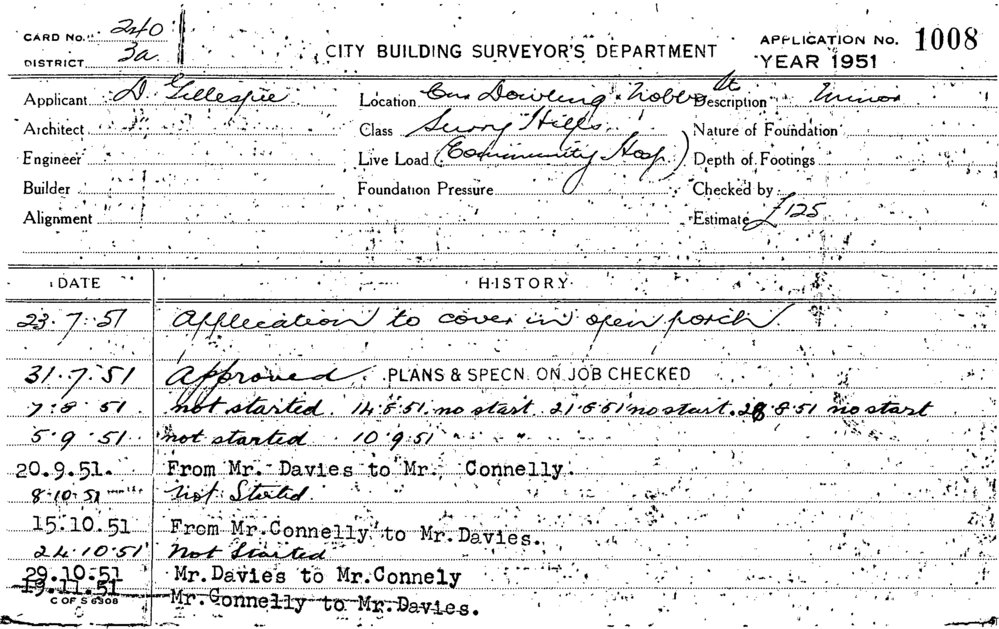 CARD No. 240
DISTRICT 3a
CITY BUILDING SURVEYOR'S DEPARTMENT
APPLICATION No. 1008
YEAR 1951
Applicant D. Gillespie Location Cnr Dowling & Nobbs St Description Minor
Architect Class Surry Hills Nature of Foundation
Engineer Live Load (Community Hosp.) Depth of Footings
Builder Foundation Pressure Checked by
Alignment Estimate £125
DATE HISTORY
23.7.51 Application to cover in open porch.
31.7.51 Approved. PLANS & SPECN. ON JOB CHECKED
7.8.51 not started. 14.8.51 no start 21.8.51 no start. 28.8.51 no start
5.9.51 not started 10.9.51 " "
20.9.51. From Mr. Davies to Mr. Connelly.
8.10.51 Not Started.
15.10.51 From Mr.Connelly to Mr.Davies.
24.10.51 Not Started
29.10.51 Mr.Davies to Mr.Connely
19.11.51 Mr.Connelly to Mr.Davies.
C OF S 6308